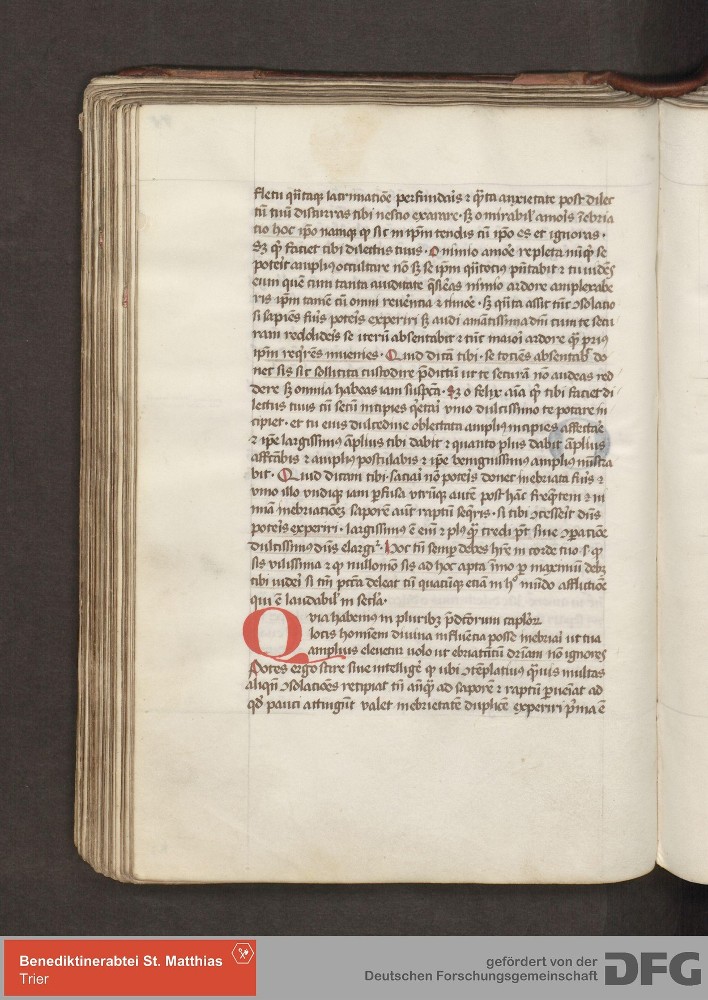 fletu qn̄taq; lacrimatiōe perfundaris ⁊ q̄ta anxietate post dilec
tū tuū discurras tibi nescio exarare · sꝫ o mirabil' amoīs īebria
tio hoc ip̄o namq; sic in ip̄m tendis cū ip̄o es et ignoras ·
Sꝫ qͥ faciet tibi dilectus tuus · O nimio amoē repleta nūq; se
poterit ampliꝰ occultare nō sꝫ se ip̄m pn̄tabit ⁊ tu uidēs
eum quē cum tanta auiditate nimio ardore amplexabe
ris ip̄m tamē cū omni reuēntia ⁊ timōe · sꝫ qn̄ta assit tūc ↄsolatio
si sapiēs fuīs poteīs experiri sꝫ audi amātissima dnī cum te secu
ram se iterū absentabit ⁊ tūc maioī ardore prius
ip̄m reqͥrēs inuenies · Quid dicā tibi · se tociēs absentabit do
nec sis sic sollicita custodire ut te securā nō audeas red
dere sꝫ omnia habeas iam suspcā · Sꝫ o felix aīa qͥ tibi faciet di
lectus tuus cū secū incipies vino dulcissimo te potare in
cipiet · et tu eius dulcedine oblectata ampliꝰ incipies affectare
⁊ ip̄e largissimꝰ āplius tibi dabit ⁊ quanto plus dabit āplius
affcābis ⁊ ampliꝰ postulabis ⁊ ip̄e benignissimus ampliꝰ mīstra
bit · Quid dicam tibi · saciaī nō poteīs donec inebriata fuīs ⁊
vino illo vndiq; iam pfusa vtrūq; autē post hāc freq̄tem ⁊ ni
miā inebriationeꝫ saporē aut raptū seq̄ris · si tibi ↄcesseīt dn̄s
poteīs experiri · largissimꝰ ē enī ⁊ plꝰ qͣ credi pt̄ siue ↄpatiōe
dulcissimus dn̄s elargiͬ · Hoc tn̄ semp debes hr̄e in corde tuo
sis vilissima ⁊ nullomō sis ad hoc apta īmo p maximū debꝫ
tibi videri si tm̄ pctā deleat tū quacūq; etiā in hͦ mūdo afflictiōe
qui ē laudabil' in secl'a ·
Quia habemꝰ in pluribꝫ p̄dcōrum caplōꝝ
locis hominem diuina influēcia posse inebriaī ut tua
amplius eleuetur uolo ut ebriatatū dr̄iam nō ignores
Potes ergo scire siue intelligē ubi ↄtēplatiuꝰ qͣuis multas
aliqn̄ ↄsolatiōes recipiat tn̄ ad saporē ⁊ raptū pueīat ad
qd̄ pauci attingūt valet inebrietatē duplicē experiri pͥma ē
Benediktinerabtei St. Matthias
Trier
gefördert von der
Deutschen Forschungsgemeinschaft
DFG